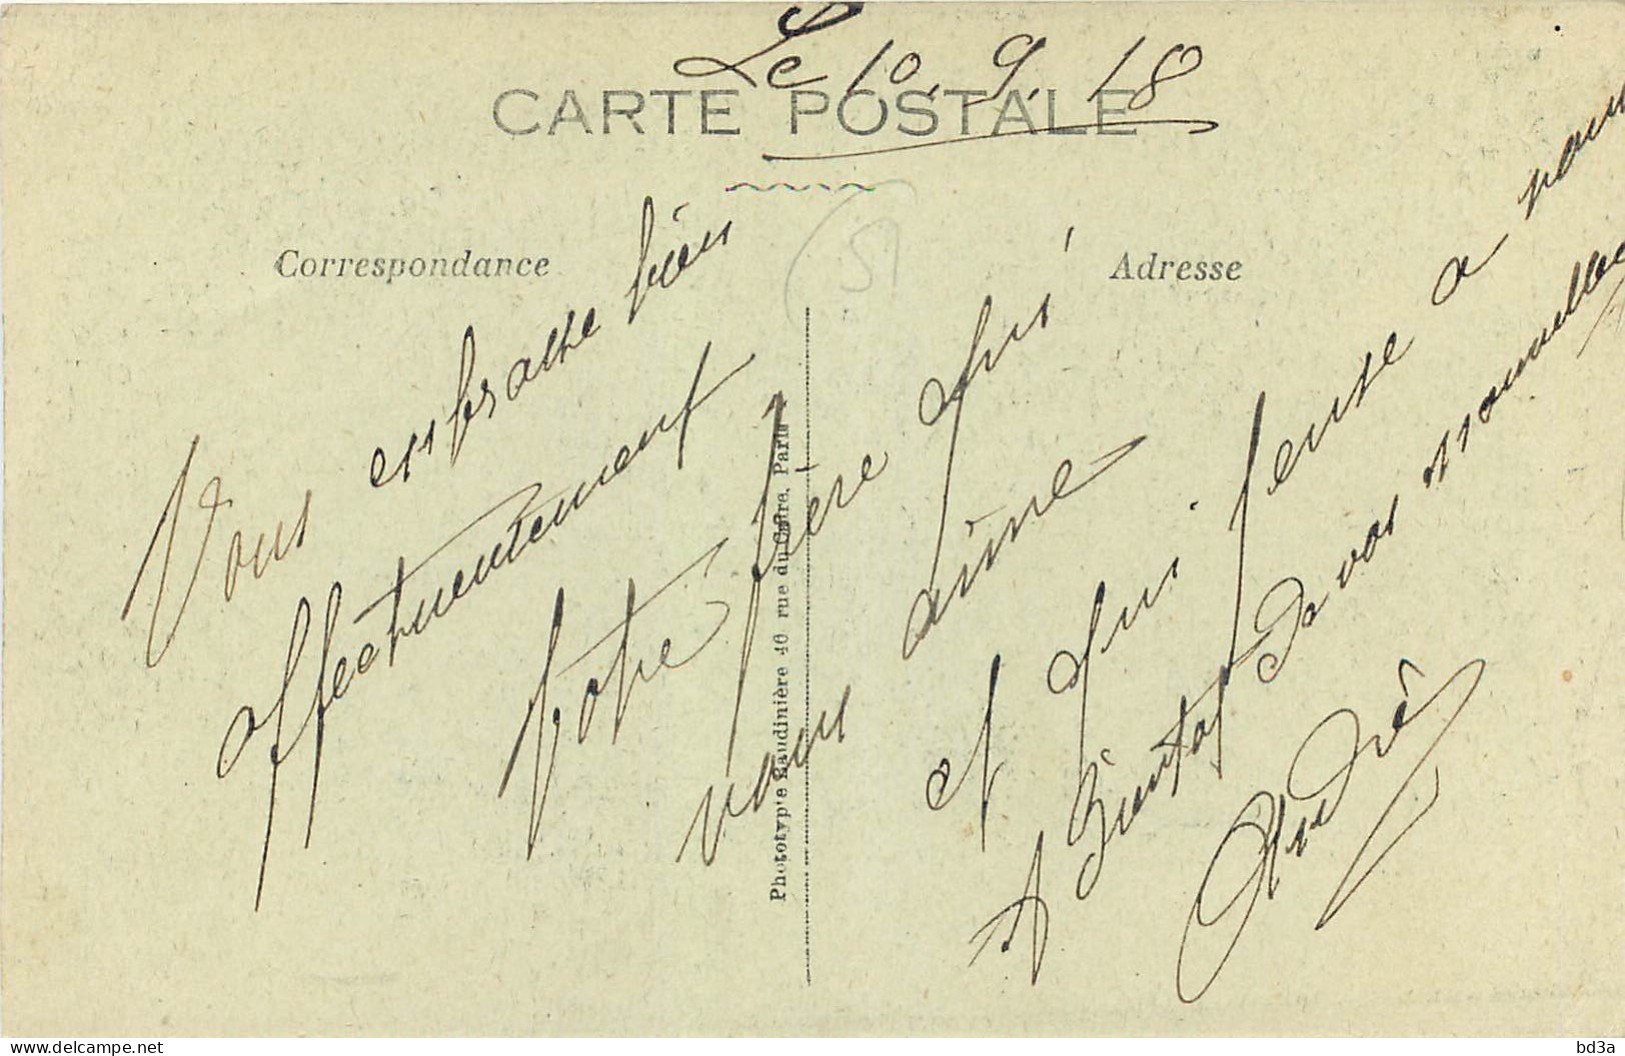 Le 10. 9. 18
CARTE POSTALE
51
Correspondance
Adresse
Vous embrasse bien
affectueusement
Votre frère qui
vous aime
et qui pense a vous
A Bientot de vos nouvelles
André
Phototypie Baudinière 40 rue du Caire, Paris
delcampe.net
bd3a